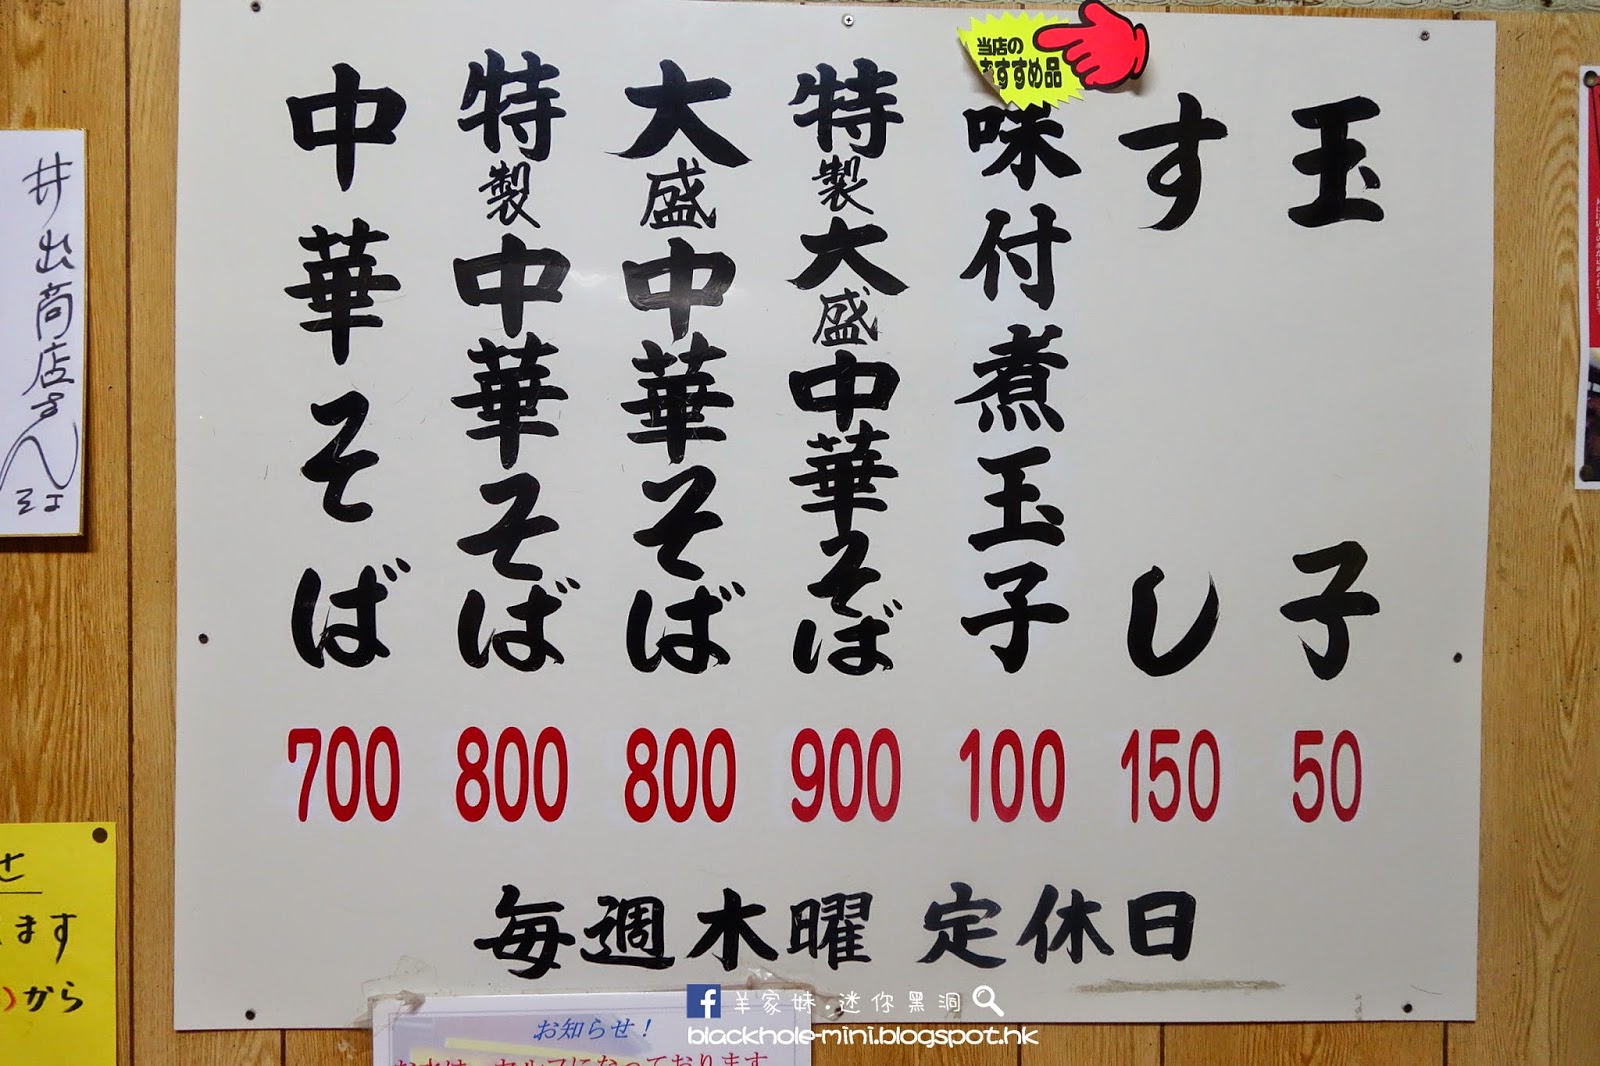 当店の
おすすめ品
中華そば
700
特製中華そば
800
大盛中華そば
800
特製大盛中華そば
900
味付煮玉子
100
すし
150
玉子
50
毎週木曜 定休日
井出商店さん
ます
から
お知らせ!
お水は、セルフになっております
羊家妹.迷你黑洞
blackhole-mini.blogspot.hk